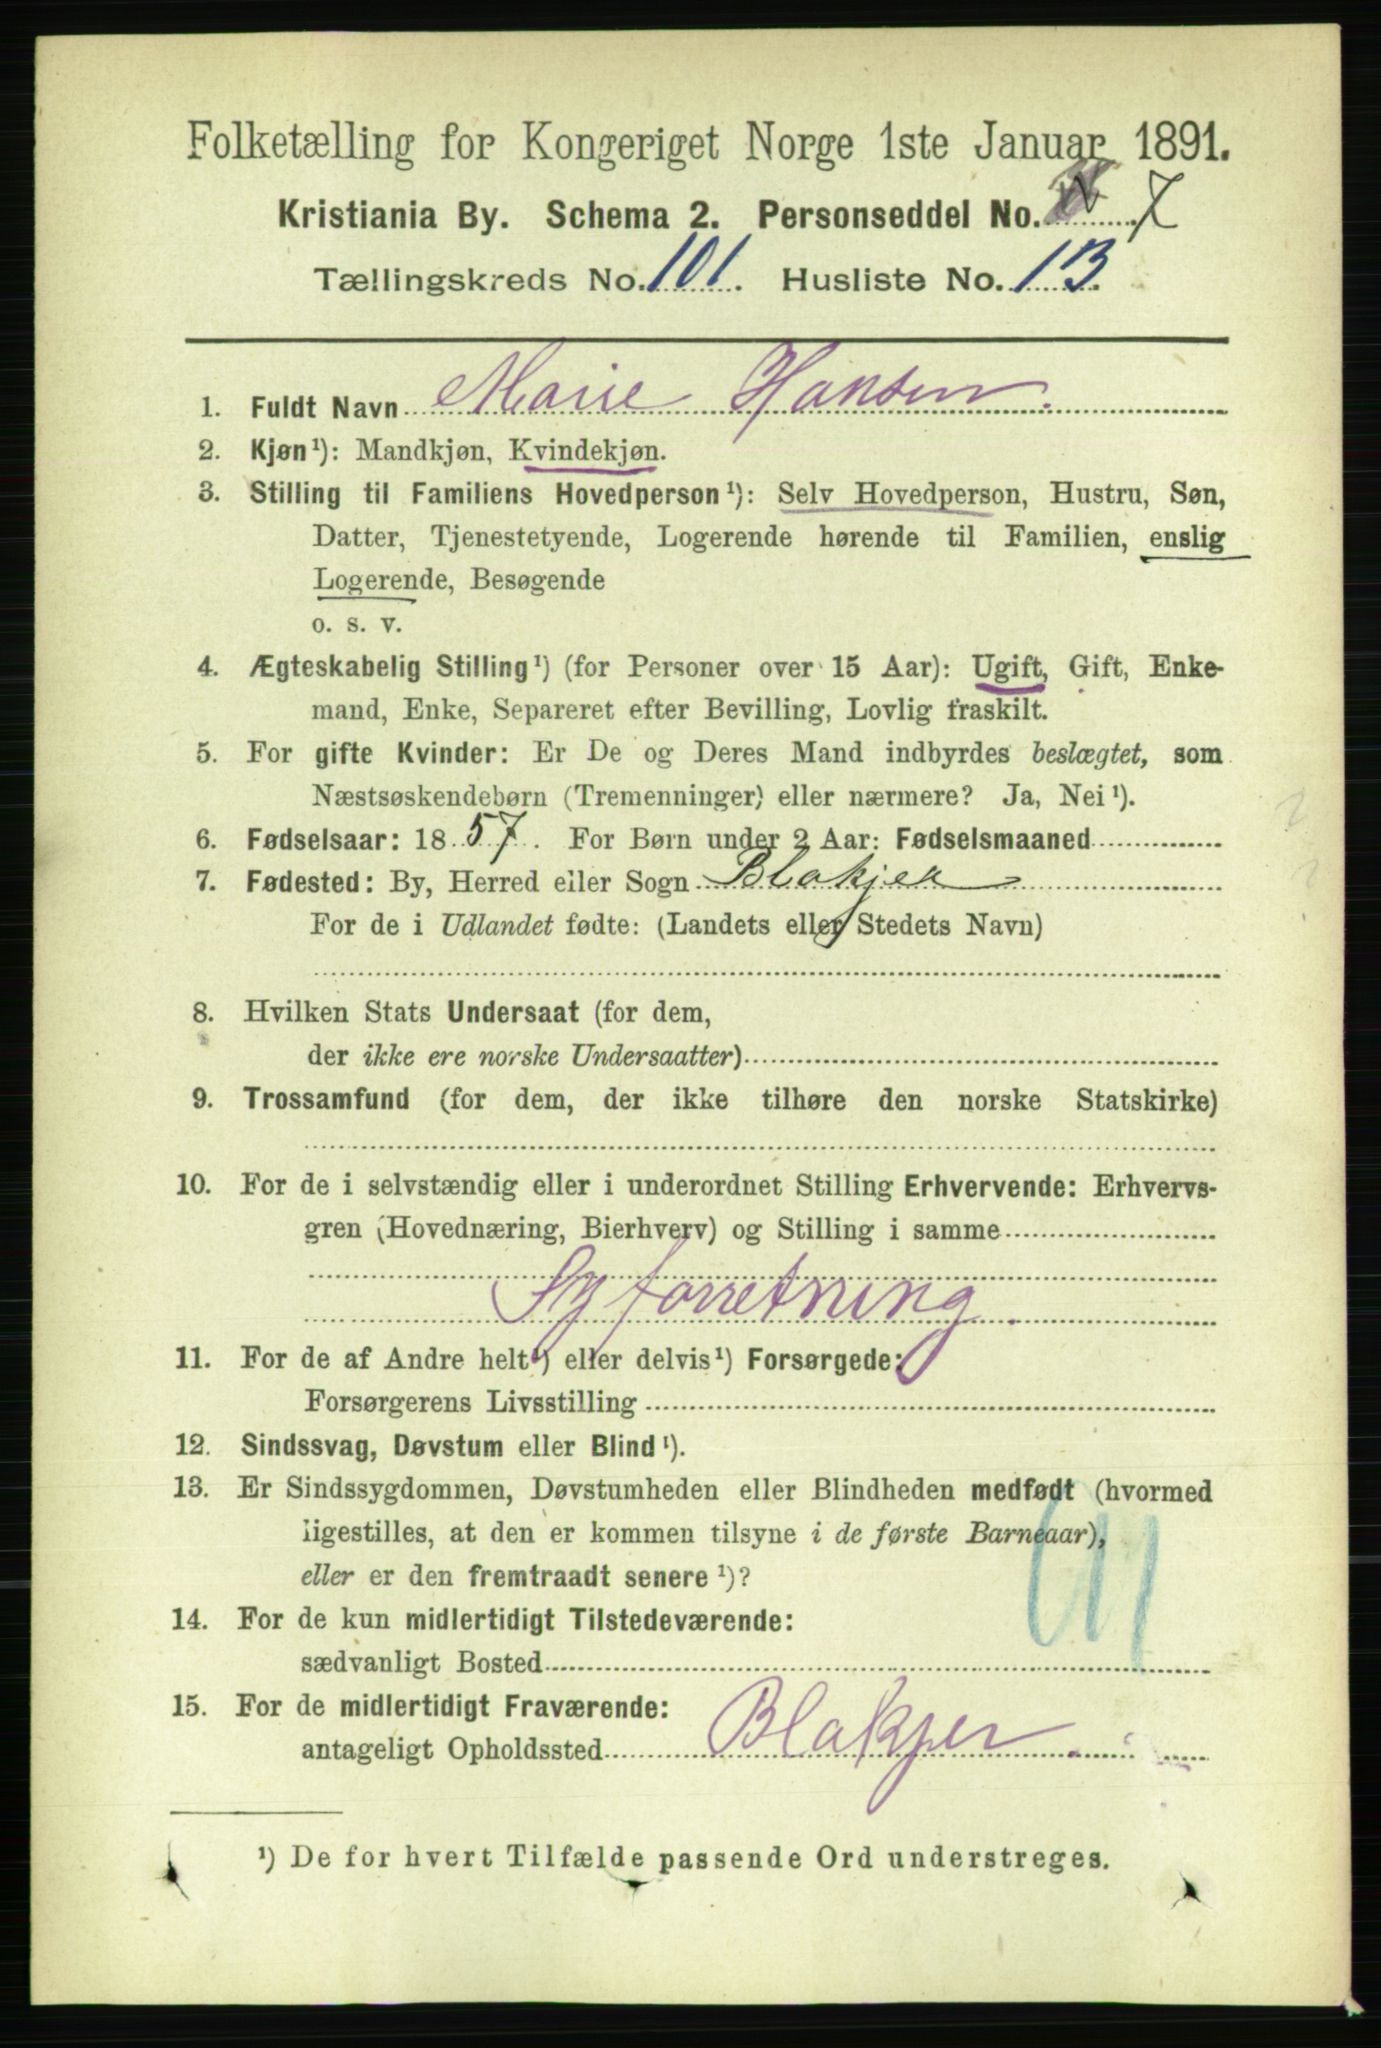 Folketælling for Kongeriget Norge 1ste Januar 1891.
Kristiania By. Schema 2. Personseddel No. 7
Tællingskreds No. 101. Husliste No. 13.
1. Fuldt Navn Marie Hansen.
2. Kjøn¹): Mandkjøn, Kvindekjøn.
3. Stilling til Familiens Hovedperson¹): Selv Hovedperson, Hustru, Søn,
Datter, Tjenestetyende, Logerende hørende til Familien, enslig
Logerende, Besøgende
o. s. v.
4. Ægteskabelig Stilling¹) (for Personer over 15 Aar): Ugift, Gift, Enke-
mand, Enke, Separeret efter Bevilling, Lovlig fraskilt.
5. For gifte Kvinder: Er De og Deres Mand indbyrdes beslægtet, som
Næstsøskendebørn (Tremenninger) eller nærmere? Ja, Nei¹).
6. Fødselsaar: 1857. For Børn under 2 Aar: Fødselsmaaned
7. Fødested: By, Herred eller Sogn Blakjer
For de i Udlandet fødte: (Landets eller Stedets Navn)
8. Hvilken Stats Undersaat (for dem,
der ikke ere norske Undersaatter)
9. Trossamfund (for dem, der ikke tilhøre den norske Statskirke)
10. For de i selvstændig eller i underordnet Stilling Erhvervende: Erhvervs-
gren (Hovednæring, Bierhverv) og Stilling i samme
Syforretning.
11. For de af Andre helt¹) eller delvis¹) Forsørgede:
Forsørgerens Livsstilling
12. Sindssvag, Døvstum eller Blind¹).
13. Er Sindssygdommen, Døvstumheden eller Blindheden medfødt (hvormed
ligestilles, at den er kommen tilsyne i de første Barneaar),
eller er den fremtraadt senere¹)?
14. For de kun midlertidigt Tilstedeværende:
sædvanligt Bosted
15. For de midlertidigt Fraværende:
antageligt Opholdssted Blakjer.
¹) De for hvert Tilfælde passende Ord understreges.